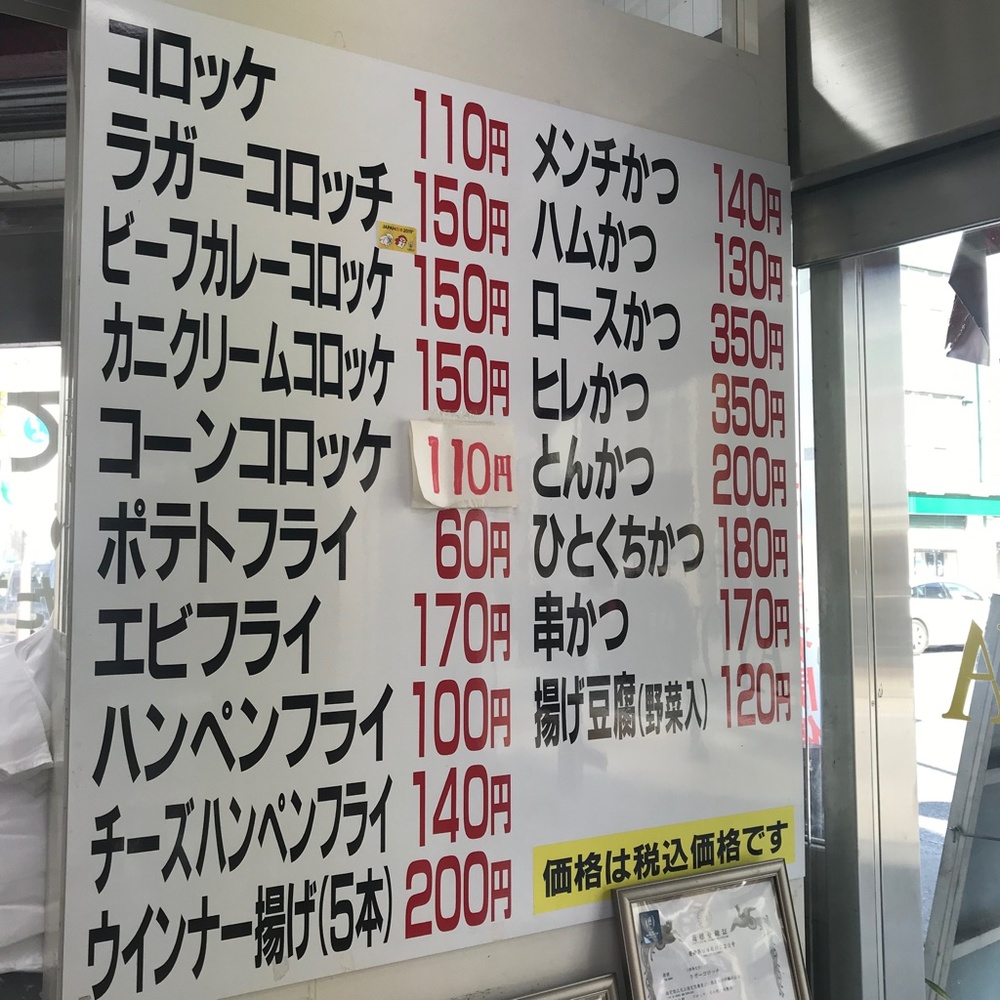 コロッケ 110円
ラガーコロッチ 150円
ビーフカレーコロッケ 150円
カニクリームコロッケ 150円
コーンコロッケ 110円
ポテトフライ 60円
エビフライ 170円
ハンペンフライ 100円
チーズハンペンフライ 140円
ウインナー揚げ(5本) 200円
メンチかつ 140円
ハムかつ 130円
ロースかつ 350円
ヒレかつ 350円
とんかつ 200円
ひとくちかつ 180円
串かつ 170円
揚げ豆腐(野菜入) 120円
価格は税込価格です
ラガーコロッケ